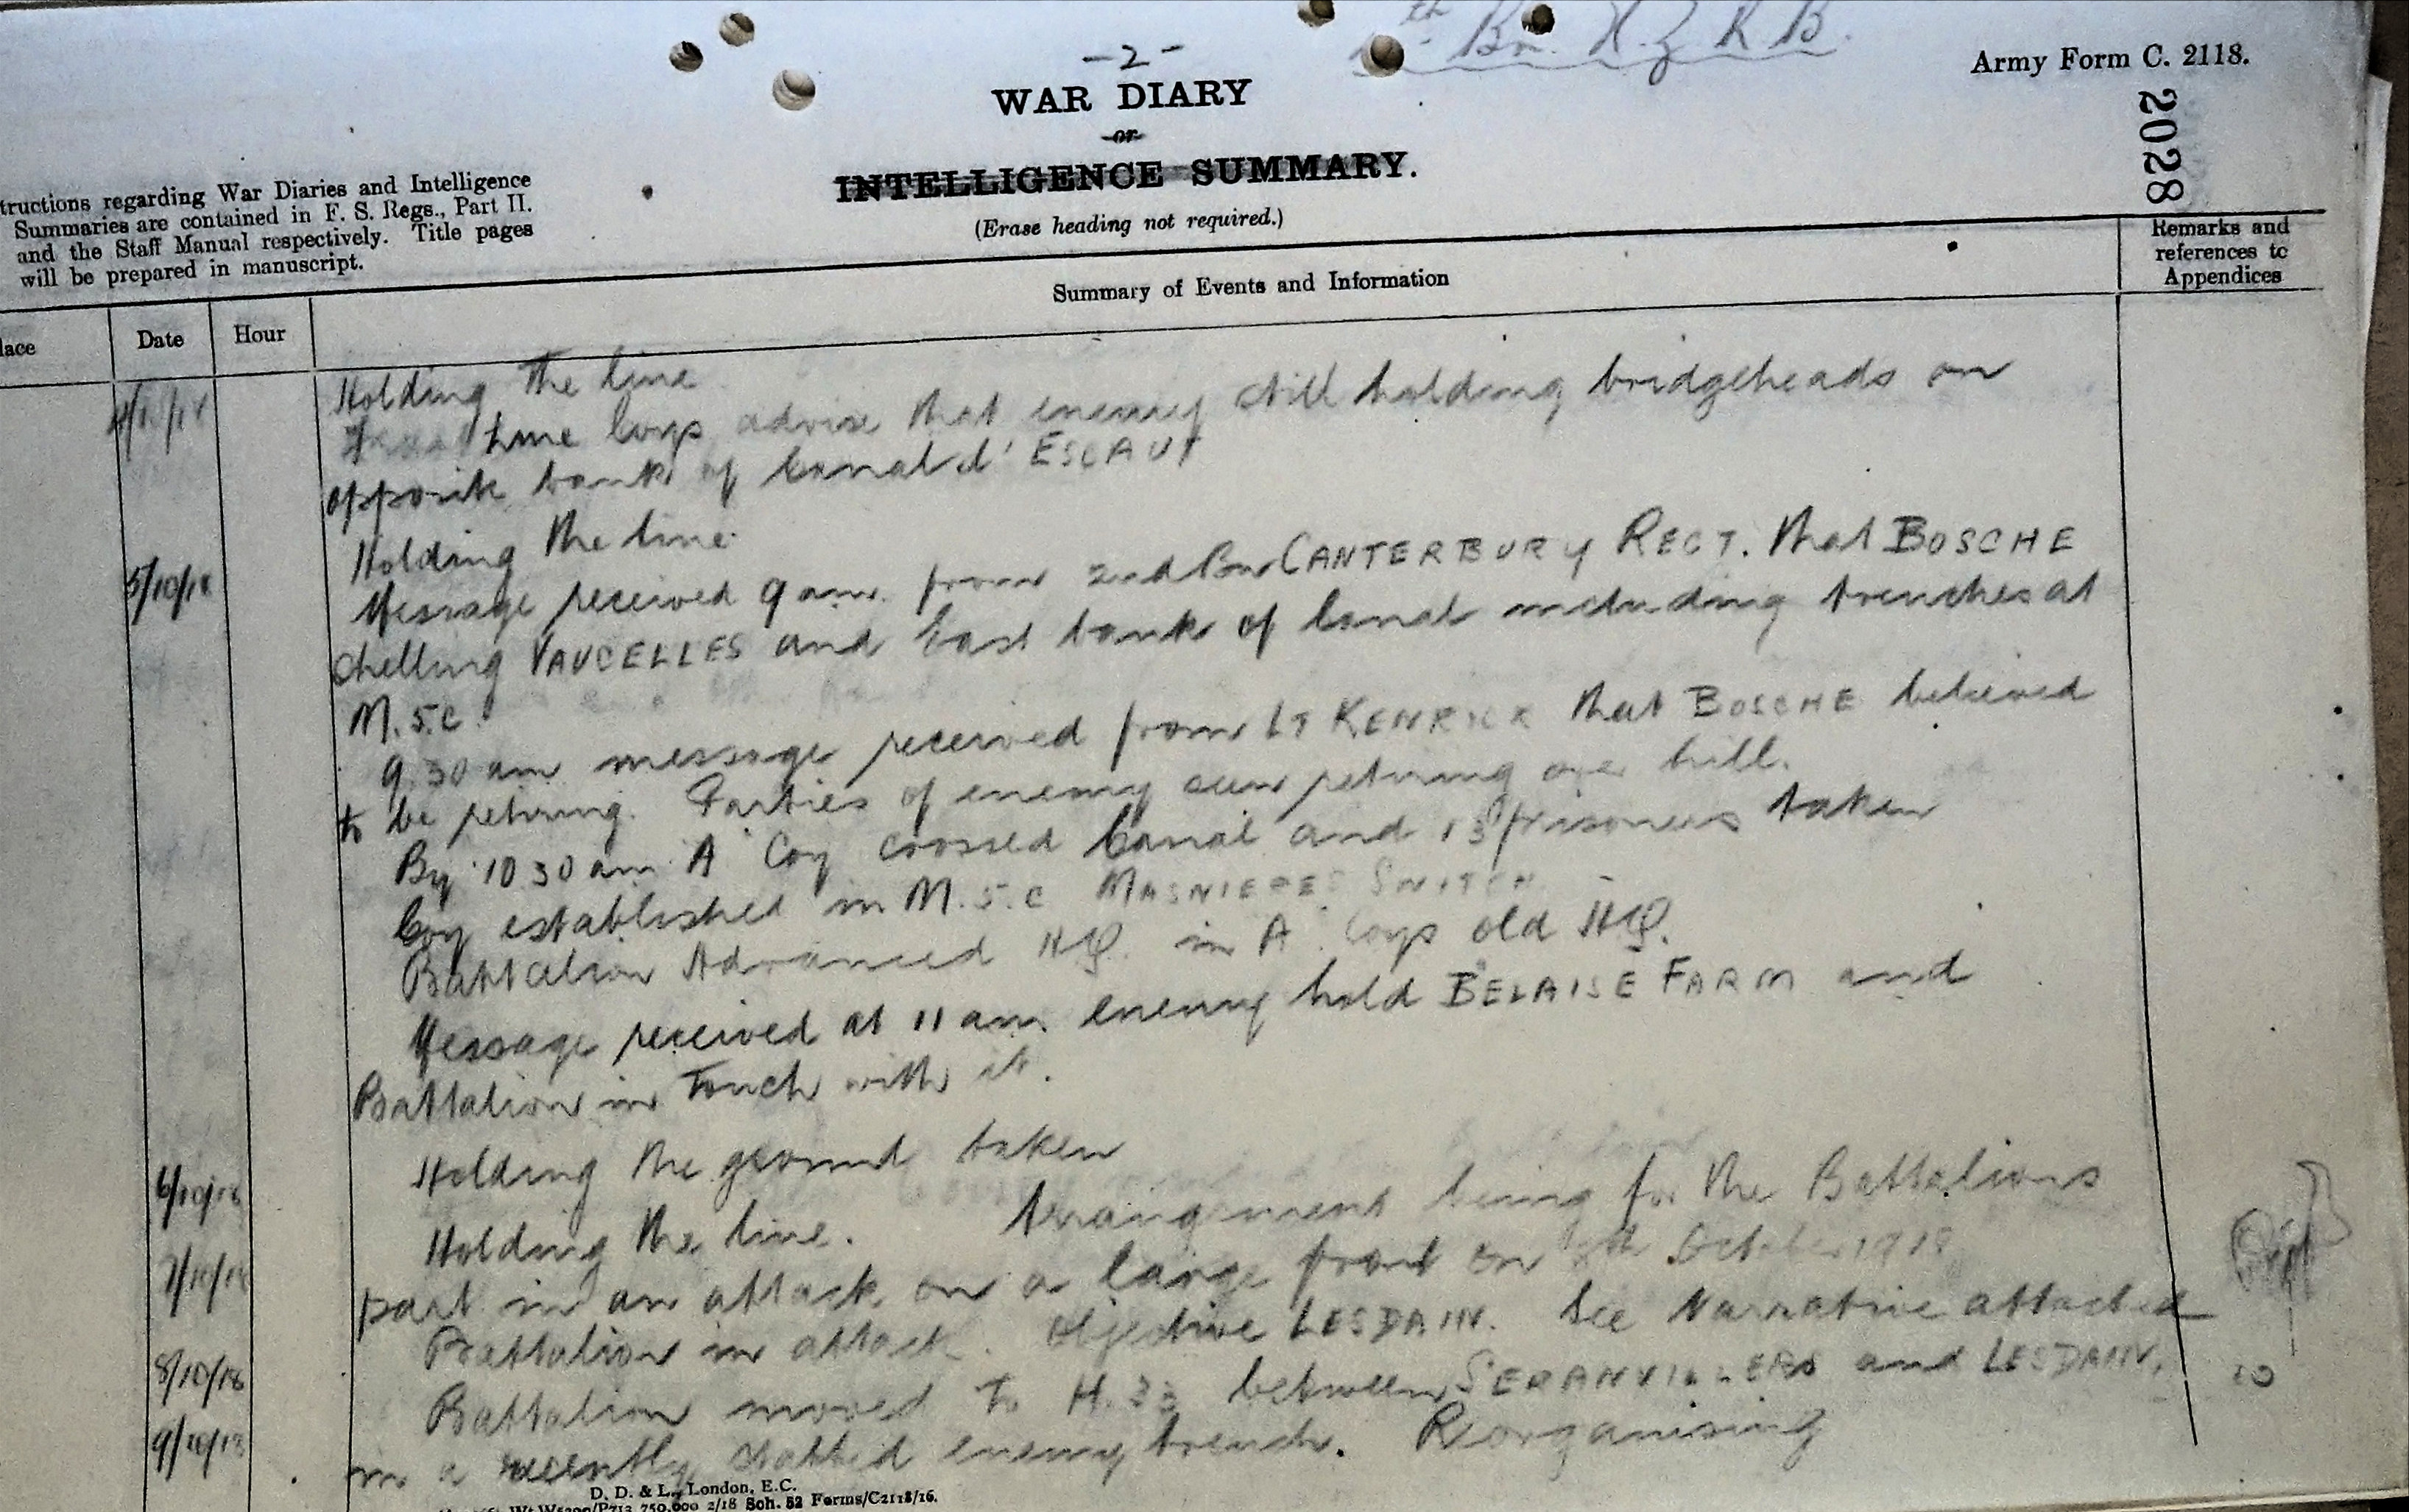 th Bn. N.Z R B.
- 2 -
WAR DIARY
or
INTELLIGENCE SUMMARY.
(Erase heading not required.)
Army Form C. 2118.
2028
tructions regarding War Diaries and Intelligence
Summaries are contained in F. S. Regs., Part II.
and the Staff Manual respectively. Title pages
will be prepared in manuscript.
lace
Date
Hour
Summary of Events and Information
Remarks and
references to
Appendices
4/10/18 Holding the line
Line Coys advise that enemy still holding bridgeheads on
opposite bank of Canal d' ESCAUT
5/10/18 Holding the line.
Message received 9 am. from 2nd Bn CANTERBURY REGT. that BOSCHE
shelling VAUCELLES and East bank of Canal including trenches at
M.5.c.
9.30 am message received from LT KENRICK that BOSCHE believed
to be retiring. Parties of enemy seen retiring over hill.
By 10 30 am A Coy crossed Canal and 13 prisoners taken
Coy established in M.5.c MASNIERES SWITCH
Battalion Advanced HQ. in A Coys old HQ.
Message received at 11 am. enemy hold BELAISE FARM and
Battalion in touch with it.
6/10/18 Holding the ground taken
7/10/18 Holding the line. Arrangement being for the Battalions
part in an attack on a large front on 8th October 1918
8/10/18 Battalion in attack. Objective LESDAIN. See Narrative attached
9/10/18 Battalion moved to H.33 between SERANVILLERS and LESDAIN,
in a recently dabbed enemy trench. Reorganising
D. D. & L., London, E.C.
750,000 2/18 Sch. 52 Forms/C2118/16.